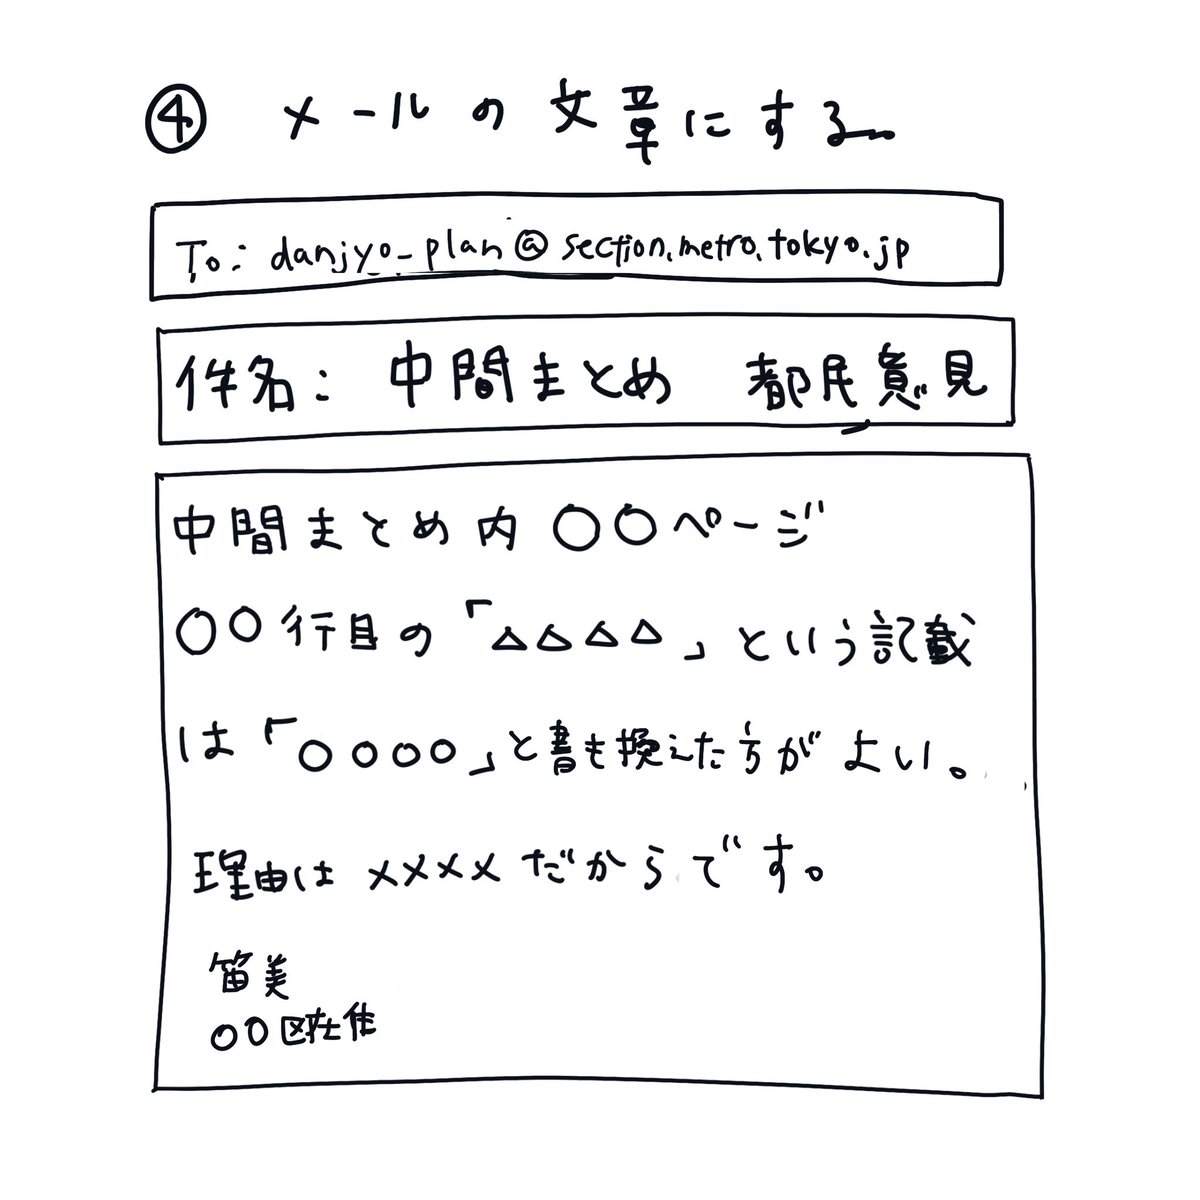 ④ メールの文章にする
To: danjyo_plan@section.metro.tokyo.jp
件名: 中間まとめ 都民意見
中間まとめ内 〇〇ページ
〇〇行目の「△△△△」という記載
は「〇〇〇〇」と書き換えた方がよい。
理由は××××だからです。
笛美
〇〇区在住